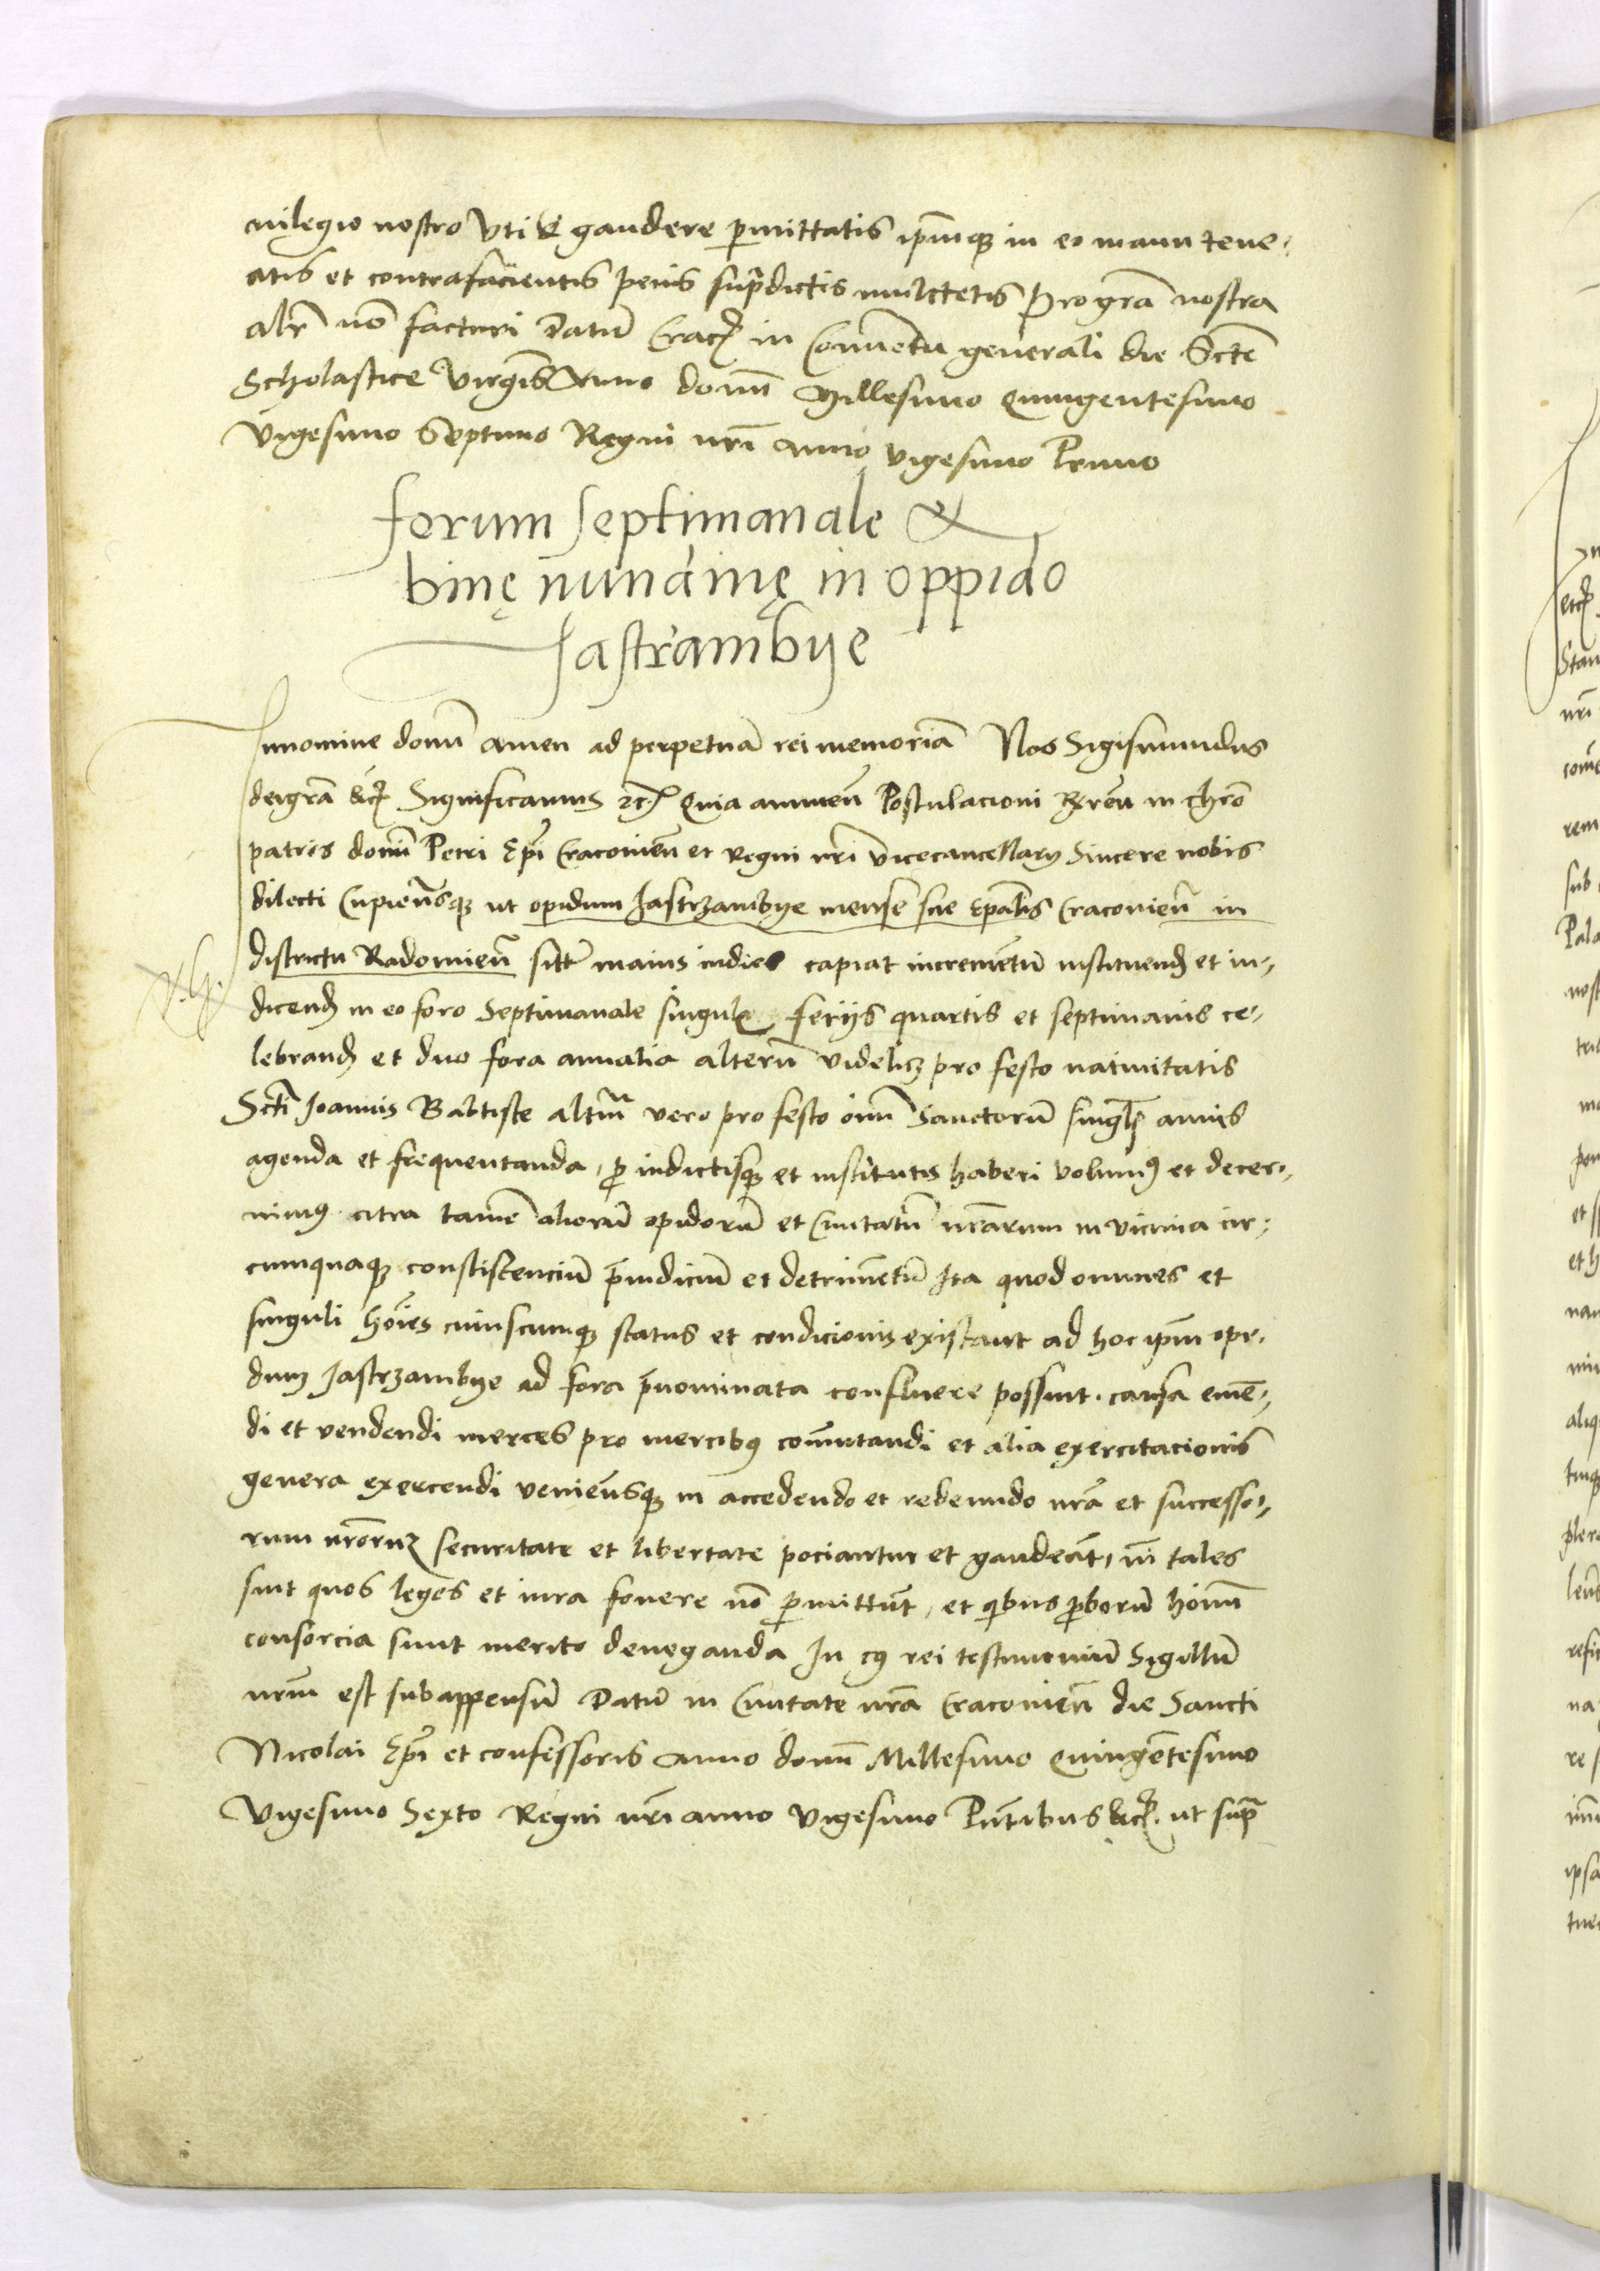 vilegio nostro vti & gaudere pmittatis ipmq in eo manu tene-
atis et contrafacientis penis supradictis mulctetis Pro gra nostra
alr no facturi Datu Crac in Conuentu generali die Scte
Scholastice Virginis Anno domi Millesimo Quingentesimo
Vigesimo Septimo Regni nri anno vigesimo Primo
forum septimanale &
binę nundinę in oppido
Jastrambye
In nomine domi amen ad perpetua rei memoria Nos Sigismundus
dei gra &c Significamus &c Quia annuen Postulacioni Rren in chro
patris domi Petri Epi Cracouien et Regni nri vicecancellary Sincere nobis
dilecti Cupiensq ut opidum Jastrzambye mense sue Epalis Cracouien in
districtu Radomien situ maius indies capiat incrementu instituend et in-
dicend in eo foro Septimanale singulis feriis quartis et septimanis ce-
lebrand et duo fora annalia alteru videliz pro festo natiuitatis
Scti Joannis Babtiste altm vero pro festo oim Sanctoru singlis annis
agenda et frequentanda, p indictisq et institutis haberi volum9 et decer-
nim9 citra tame alioru opidoru et Ciuitatu nrarum in vicinia cir-
cumquaq consistenciu preiudiciu et detrimentu Ita quod omnes et
singuli hoies cuiuscumq status et condicionis existant ad hoc ipm opi-
dum Jastrzambye ad fora prenominata confluere possint. causa eme-
di et vendendi merces pro mercib9 comutandi et alia exercitacionis
genera exercendi veniensq in accedendo et redeundo nra et successo-
rum nrorum securitate et libertate pociantur et gaudeant, ni tales
sint quos leges et iura fouere no pmittunt, et qibus proboru homi
consorcia sunt merito deneganda In c9 rei testimoniu Sigillu
nrm est subappensu Datu in Ciuitate nra Cracouien die Sancti
Nicolai Epi et confessoris anno domi Millesimo Quingentesimo
Vigesimo Sexto Regni nri anno vigesimo Pntibus &c. ut supra